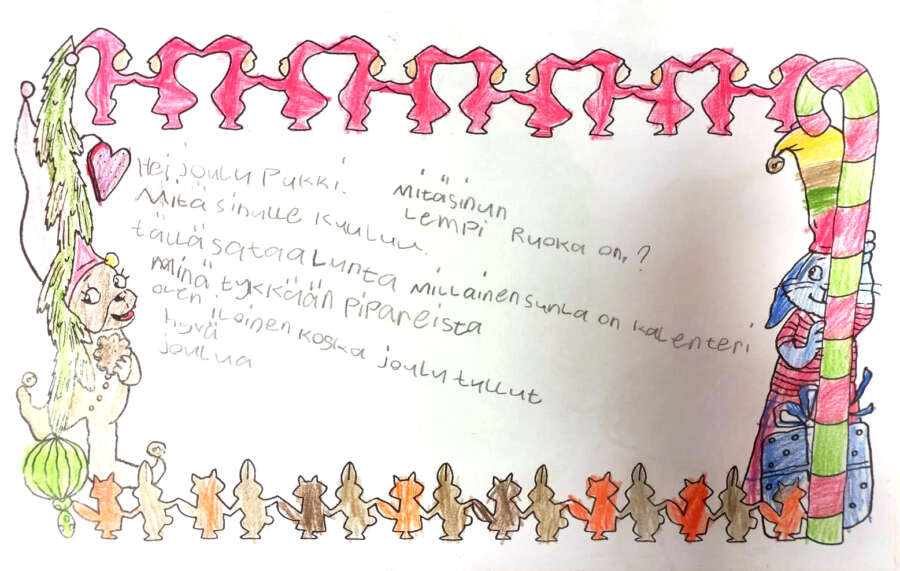 Hei joulu Pukki.
mitäsinun
Lempi Ruoka on,?
Mitä sinulle kuuluu.
tällä sataa Lunta millainen sunla on kalenteri
minä tykkään pipareista
olen iloinen koska joulu tullut
hyvä
joulua